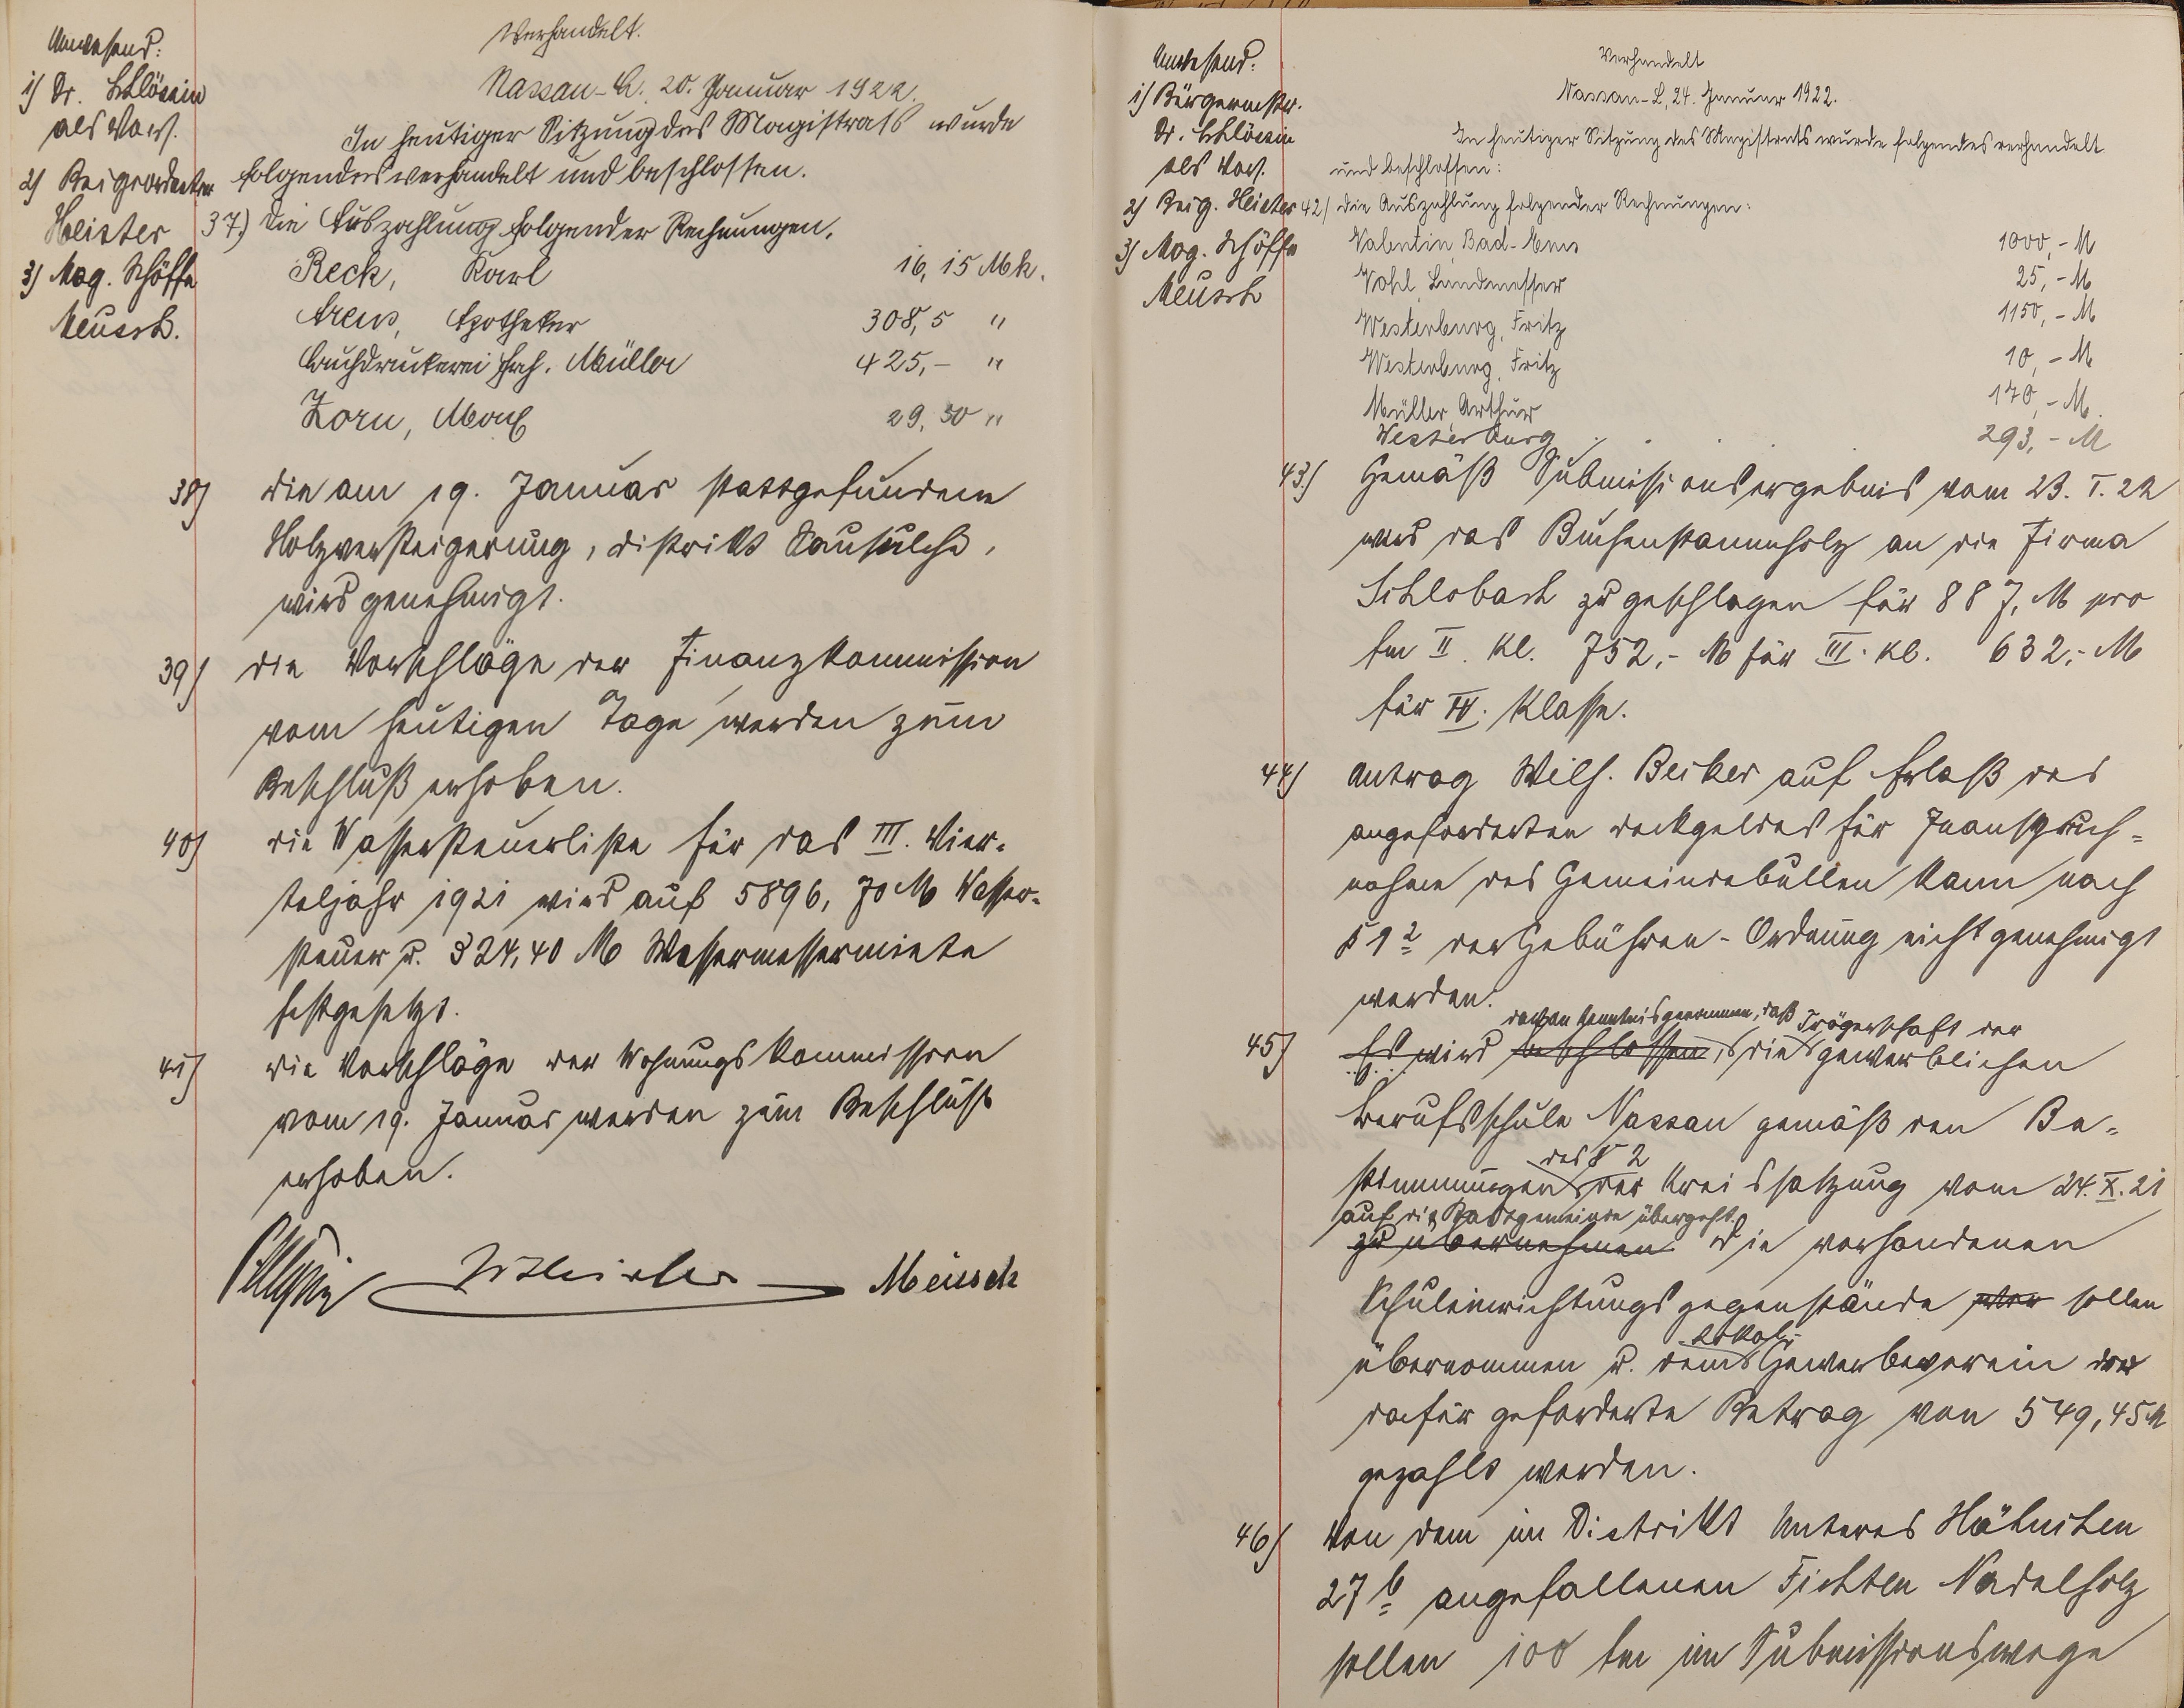 Anwesend:
1) Dr. Schlösin
als Vors.
2) Beigeordneter
Heister
3) Mag. Schöffe
Meusch.
Verhandelt.
Nassau-L. 20. Januar 1922.
In heutiger Sitzung des Magistrats wurde
folgendes verhandelt und beschlossen.
37.) Die Auszahlung folgender Rechnungen.
Reck, Karl 16,15 Mk.
Arens, Apotheker 308,5 "
Buchdruckerei Hrch. Müller 425,- "
Zorn, Mon 29,30 "
38) die am 19. Januar stattgefundene
Holzversteigerung, Distrikt
wird genehmigt.
39) die Vorschläge der Finanzkommission
vom heutigen Tage werden zum
Beschluß erhoben.
40) die Wassersteuerliste für das III. Vier-
teljahr 1921 wird auf 5896,70 M Wasser-
steuer u. 324,40 M Wassermessermiete
festgesetzt.
41) die Vorschläge der Wohnungskommission
vom 19. Januar werden zum Beschluß
erhoben.
Heister Meusch
Anwesend:
1) Bürgermstr.
Dr. Schlösin
als Vors.
2) Beig. Heister
3) Mag. Schöffe
Meusch
Verhandelt
Nassau-L, 24. Januar 1922.
In heutiger Sitzung des Magistrats wurde folgendes verhandelt
und beschlossen:
42) die Auszahlung folgender Rechnungen:
Valentin, Bad-Ems 1000,- M
Vohl, Landmesser 25,- M
Westerburg, Fritz 1150,- M
Westerburg, Fritz 10,- M
Müller, Arthur 170,- M.
Westerburg . . . . 293,- M
43) Gemäß Submissionsergebnis vom 23. I. 22
wird das Buchenstammholz an die Firma
Schlobach zugeschlagen für 887,M pro
fm II. Kl. 752,- M für III. Kl. 632,- M
für IV. Klasse.
44) Antrag Wilh. Becker auf Erlaß des
angeforderten Deckgeldes für Inanspruch-
nahme des Gemeindebullen kann nach
§ 1² der Gebühren-Ordnung nicht genehmigt
werden.
davon Kenntnis genommen, daß Trägerschaft der
45) Es wird beschlossen, die gewerblichen
Berufsschule Nassau gemäß den Be-
des § 2
stimmungen der Kreissatzung vom 24. X. 21
auf die Stadtgemeinde übergeht.
zu übernehmen. Die vorhandenen
Schuleinrichtungsgegenstände sollen
Lokal-
übernommen u. dem Gewerbeverein der
dafür geforderte Betrag von 549,45 M
gezahlt werden.
46) Von dem im Distrikt Unteres Hähnchen
27 b angefallenen Fichten Nadelholz
sollen 100 fm im Submissionswege